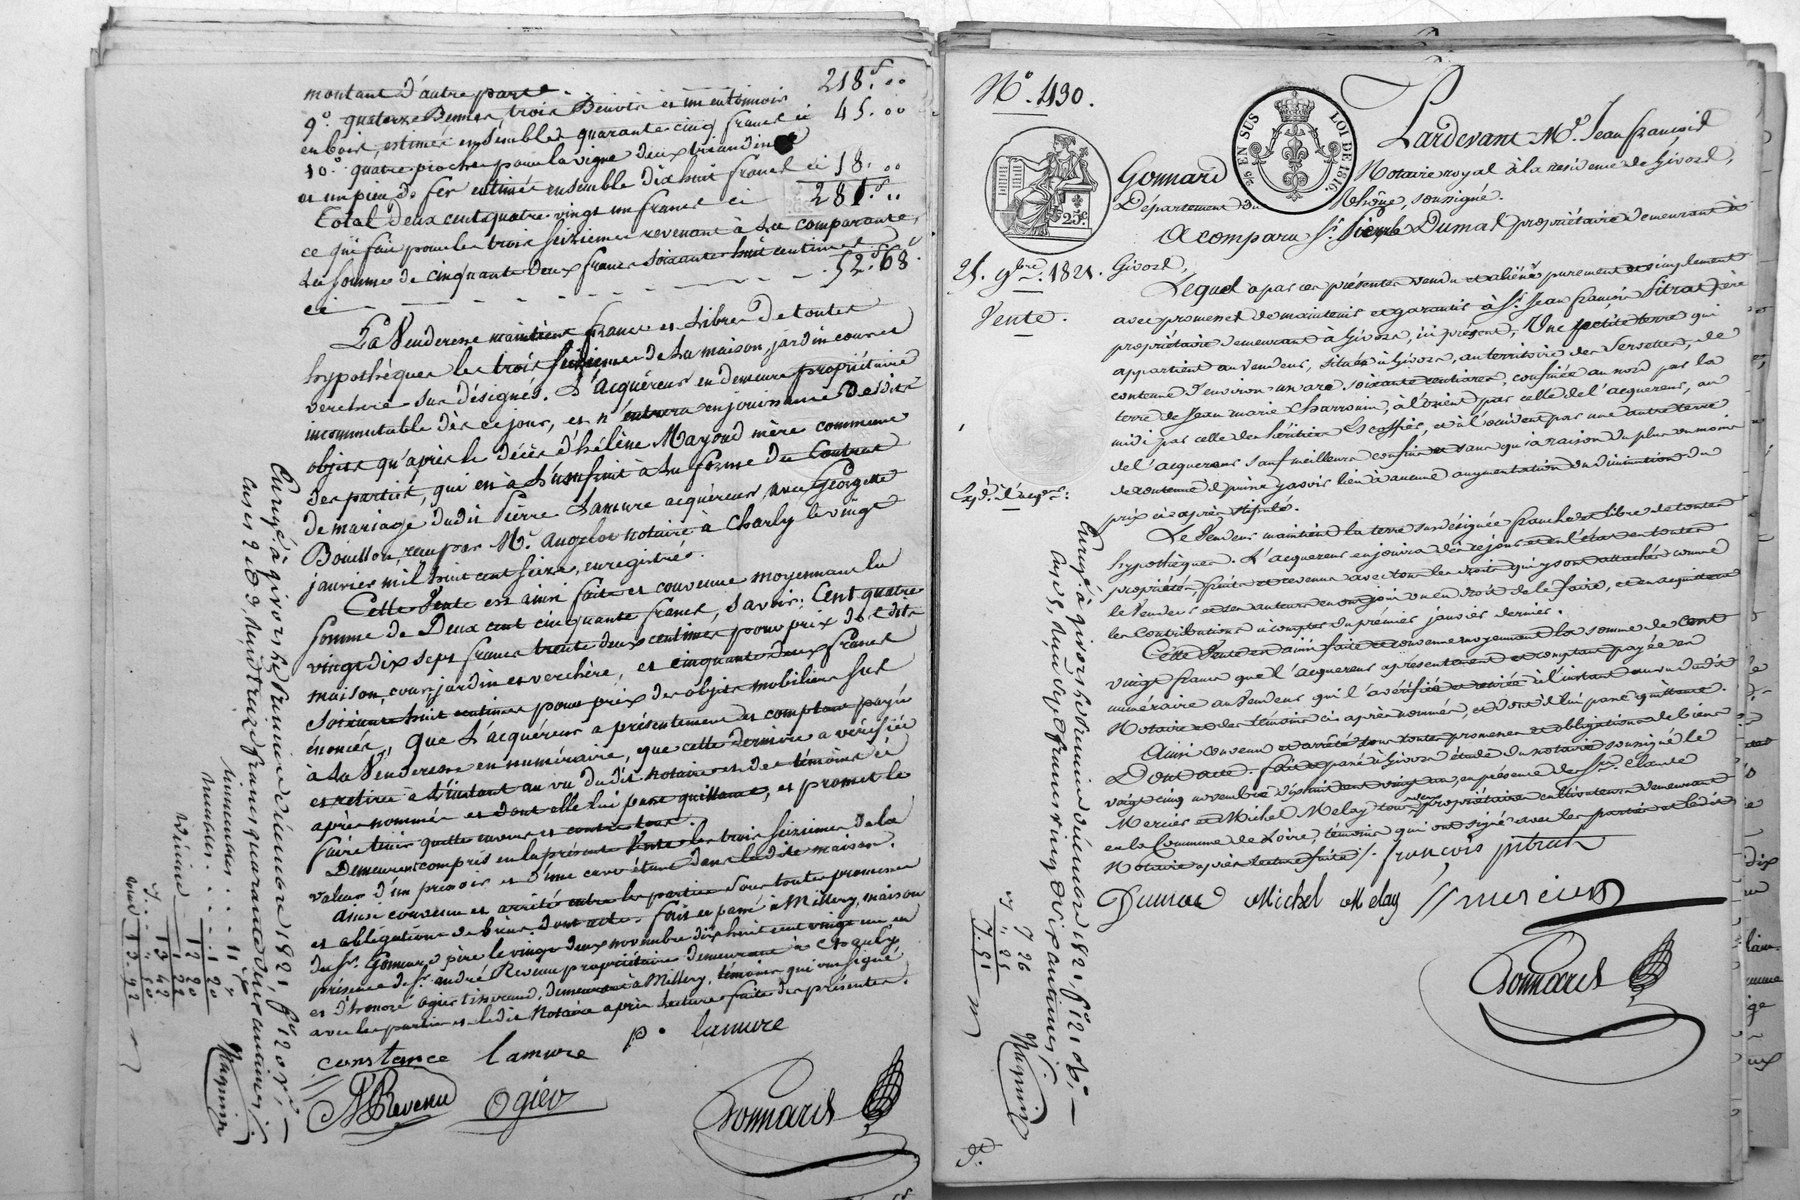 montant d'autre part 218.f 00
9.° quatorze Bennes, trois Benots et un entonnoir
en bois, estimés ensemble quarante cinq francs ci 45. 00
10.° quatre pioches pour la vigne deux triandines
et un pieu de fer estimés ensemble dix huit francs ci 18. 00
Total deux cent quatre-vingt un francs ci 281.f 00
ce qui fait pour les trois seizièmes revenant à la comparante,
la somme de cinquante deux francs soixante huit centimes
ci 52.f 68.c
La Venderesse maintient francs et libres de toutes
hypothèques les trois seizièmes de la maison, jardin cour et
verchère sus désignés. L'acquéreur en demeure propriétaire
incommutable dès ce jour, et n'entrera en jouissance desdits
objets qu'après le décès d'hélène Mayoud mère commune
des parties, qui en a l'usufruit à la forme du Contrat
de mariage dudit Pierre Lamure acquéreur, avec Georgette
Bouillon, reçu par M.e Angelot notaire à Charly le vingt
janvier mil huit cent seize, enregistré.
Cette Vente est ainsi faite et convenue moyennant la
somme de Deux cent cinquante francs, Savoir: Cent quatre
vingt dix sept francs trente deux centimes pour prix desdits
maison, cour, jardin et verchère, et cinquante deux francs
soixante huit centimes pour prix des objets mobiliers sus
énoncés, que l'acquéreur a présentement et comptant payés
à la Venderesse en numéraire, que cette dernière a vérifiée
et retirée à l'instant au vu dudit notaire et des témoins ci
après nommés et dont elle lui passe quittance, et promet le
faire tenir quitte envers et contre tous.
Demeurent compris en la présente Vente les trois seizièmes de la
valeur d'un pressoir et d'une cuve étant dans ladite maison.
Ainsi convenu et arrêté entre les parties sous toutes promesses
et obligations de biens. dont acte. fait et passé à Millery, maison
du Sr. Gonnard père le vingt deux novembre dix huit cent vingt un en
présence de Sr. andré Reveau propriétaire demeurant à
et d'honoré Ogier tisserand, demeurant à Millery, témoins qui ont signé
avec les parties et ledit Notaire après lecture faite des présentes.
constance lamure p. lamure
A Reveau Ogier Gonnard
Enreg.é à givors le
1821, f.°
quarante
Vinn
meubles
décime
12 20
1 22
13 42
" 50
13. 92
N.° 430.
EN SUS LOI DE 1816.
25c.
Pardevant M.e Jean françois
Gonnard Notaire royal à la résidence de Givors,
Département du Rhône, soussigné.
A comparu Sr. Dumas propriétaire demeurant à
25. 9bre. 1821. Givors,
Vente.
Lequel a par ces présentes vendu et aliéné purement et simplement
avec promesse de maintenir et garantir à Sr. Jean françois Pitrat père
propriétaire demeurant à Givors, ici présent, Une petite terre qui
appartient au vendeur, située à Givors, au territoire des Versettes, de
contenue d'environ un are, soixante centiares, confinée au nord par la
terre de Jean marie Charronin, à l'orient par celle de l'acquéreur, au
midi par celle des héritiers Escoffier, et à l'occident par une autre terre
de l'acquéreur sauf meilleurs confins et sans qu'à raison du plus ou moins
de contenue il puisse y avoir lieu à aucune augmentation ou diminution du
prix ci après stipulé.
Exp.é l'acq.r:
Le Vendeur maintient la terre sus désignée franche et libre de toutes
hypothèques. L'acquéreur en jouira dès ce jour et en l'état en toutes
propriété, fruits et revenus avec tous les droits qui y sont attachés comme
le Vendeur et ses auteurs en ont joui ou eu droit de le faire, et en acquittera
les Contributions à compter du premier janvier dernier.
Cette Vente est ainsi faite et convenue moyennant la somme de Cent
vingt francs que l'acquéreur a présentement et comptant payée en
numéraire au Vendeur qui l'a vérifiée et retirée à l'instant au vu dudit
Notaire et des témoins ci après nommés, et dont il lui passe quittance.
Ainsi convenu et arrêté sous toutes promesses et obligations de biens
Dont acte. fait et passé à Givors étude du notaire soussigné le
vingt cinq novembre dix huit cent vingt un, en présence de Srs.
Mercier et Michel Melay tous deux propriétaires cultivateurs demeurant
en la Commune de Loire, témoins qui ont signé avec les parties et ledit
Notaire après lecture faite /. françois pitrat
Dumas Michel Melay mercier
Gonnard
Enreg.é à givors le
1821, f.°
7 26
" 25
7. 51